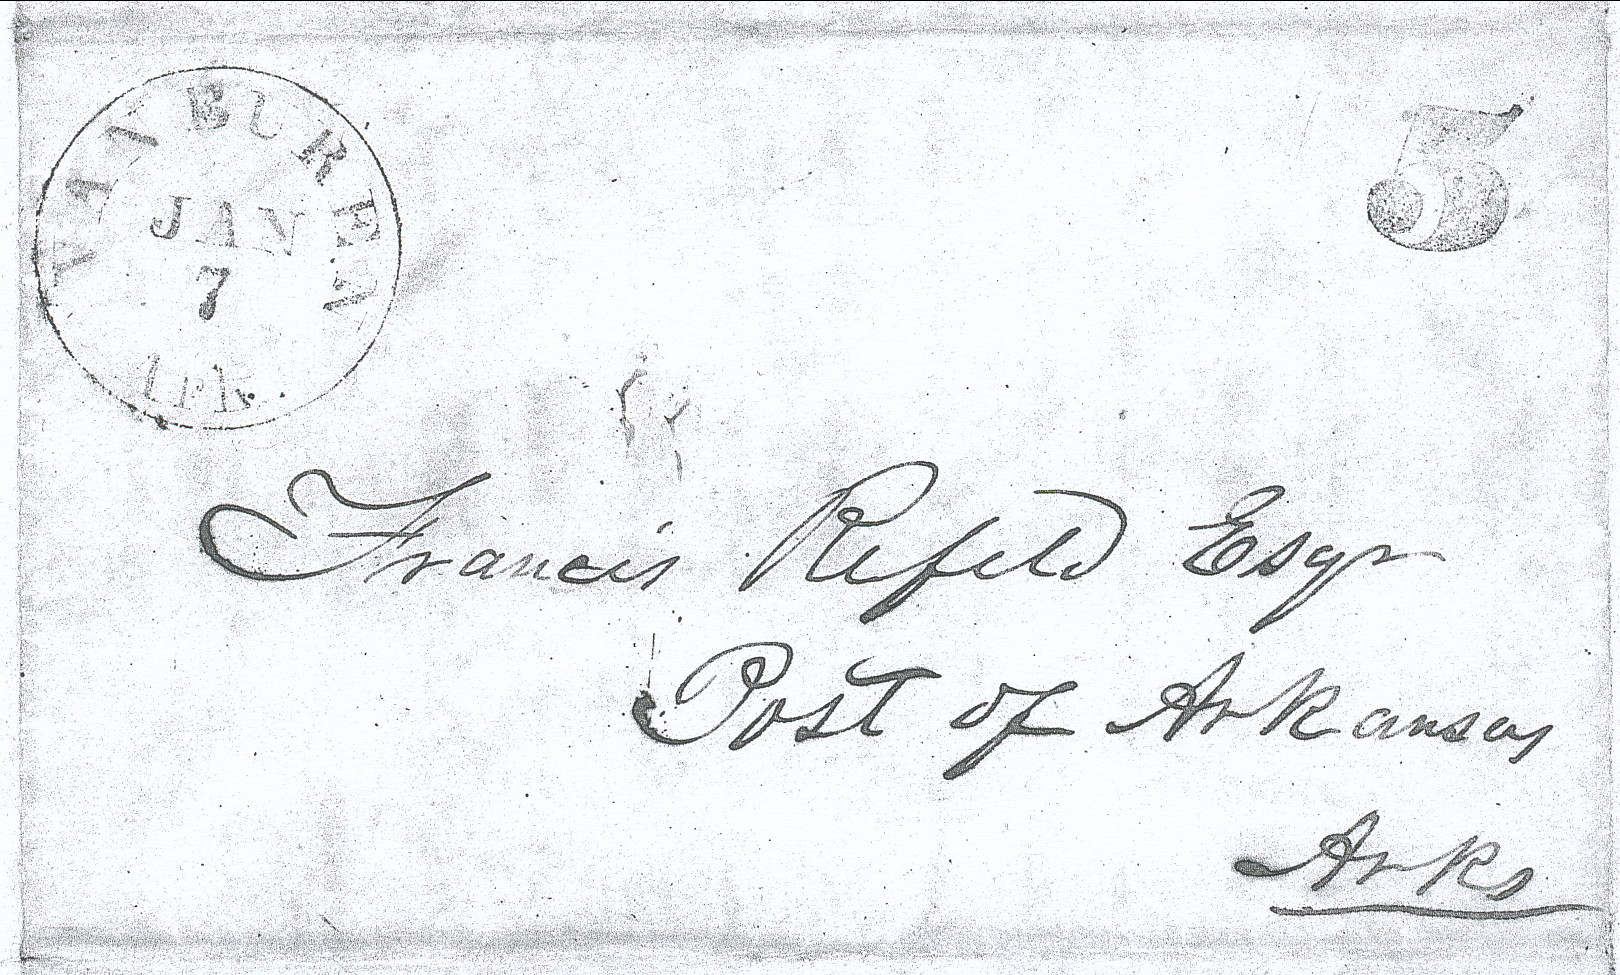 VAN BUREN
JAN
7
Ark.
5
Francis Refeld Esqr
Post of Arkansas
Arks